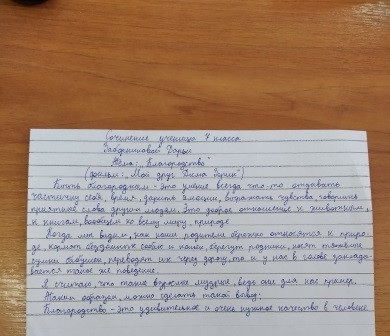 Сочинение ученицы 7 класса
Дарьи
Тема: "Благородство"
(фильм: "Мой друг Дима Зорин")
Быть благородным - это умение всегда что-то отдавать
частичку себя, время, дарить эмоции, выражать чувства, говорить
приятные слова другим людям. Это доброе отношение к животным,
к книгам, вообщем ко всему миру, природе
Когда мы видим, как наши родители бережно относятся к приро-
де, кормят бездомных собак и кошек, берегут родники, носят тяжелые
сумки бабушек, переводят их через дорогу, то и у нас в голове заклады-
вается такое же поведение.
Я считаю, что такие взрослые мудрые, ведь они для нас пример.
Таким образом, можно сделать такой вывод:
Благородство - это удивительное и очень нужное качество в человеке